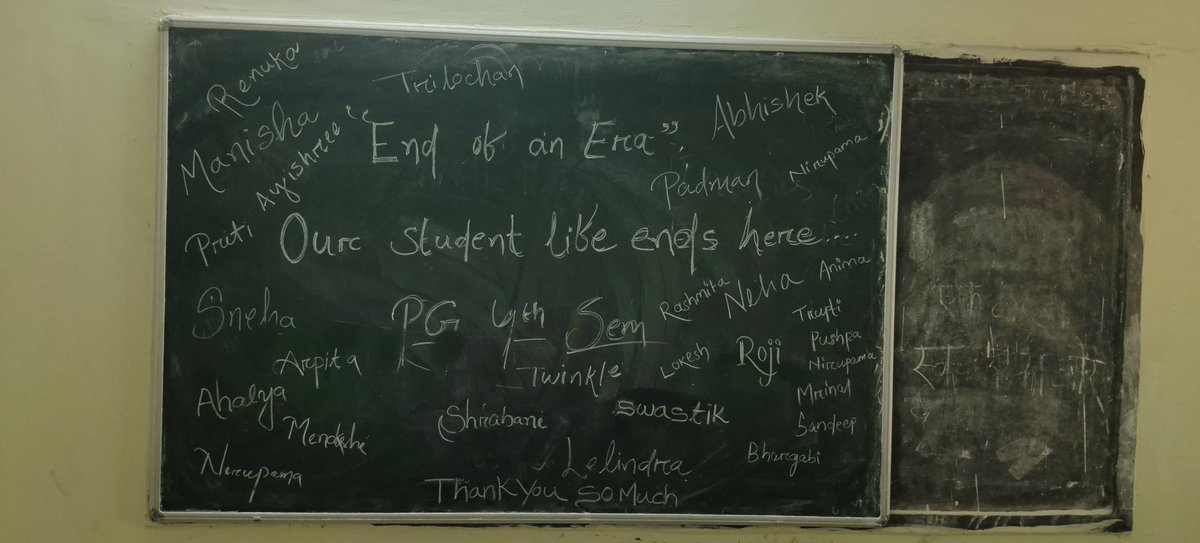 Renuka
Trilochan
Abhishek
Manisha
Ayishree
"End of an Era".
Nirupama
Padman
Pruti
Our student life ends here....
Anima
Sneha
PG 4th Sem
Rashmita
Neha
Trupti
Pushpa
Arpita
Twinkle
Lokesh
Roji
Nirupama
Ahalya
Mrinal
Shrabani
swastik
Sandeep
Nirupama
Lelindra
Bhargabi
Thank You So Much